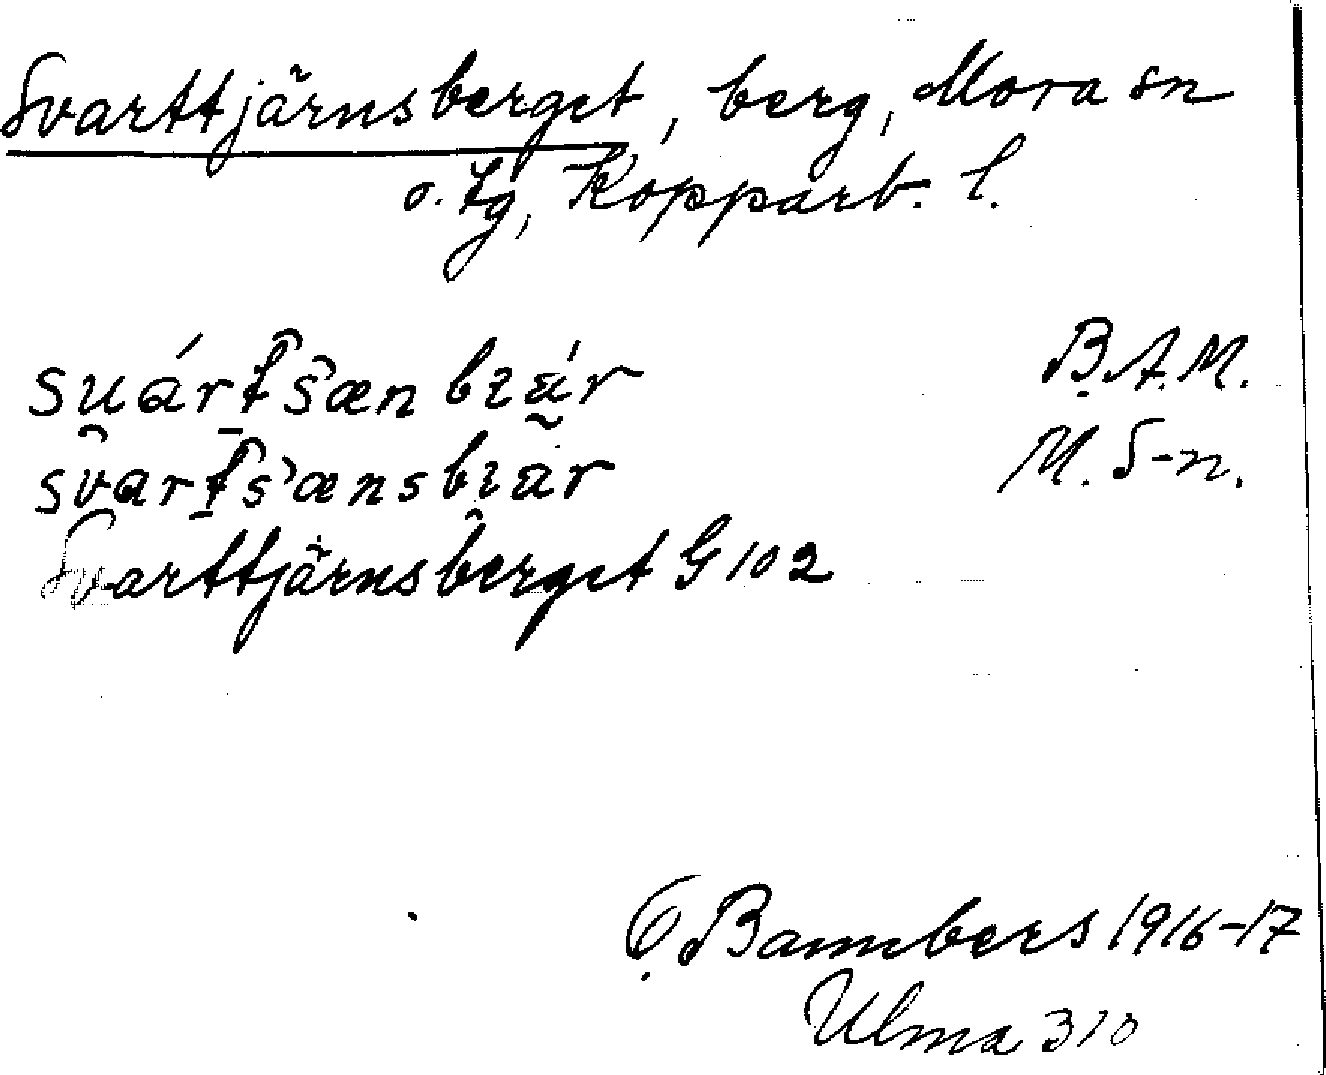 Svarttjärnsberget, berg, Mora sn
o. tg, Kopparb. l.
B.A.M.
M. S-n.
Svarttjärnsberget G 102
O. Bannbers 1916-17
Ulma 310